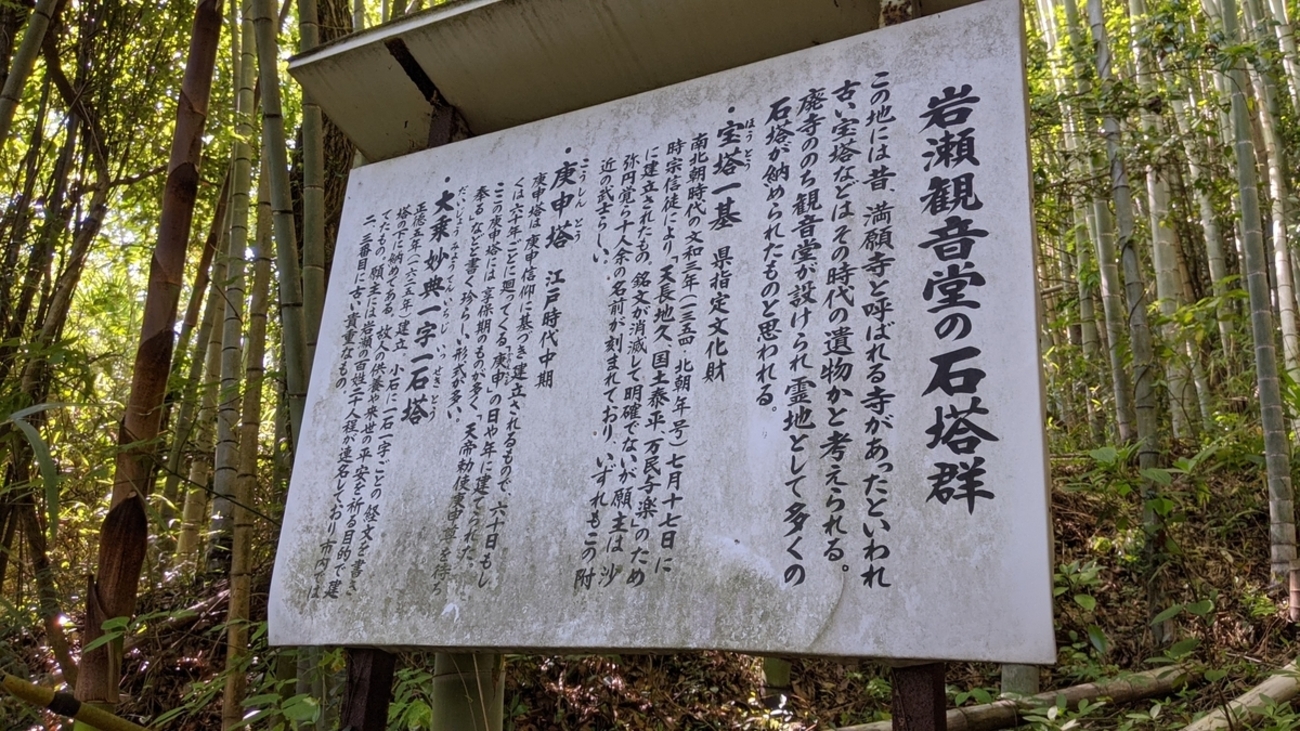 岩瀬観音堂の石塔群
この地には昔、満願寺と呼ばれる寺があったといわれ
古い宝塔などはその時代の遺物かと考えられる。
廃寺ののち観音堂が設けられ霊地として多くの
石塔が納められたものと思われる。
・宝塔一基 県指定文化財
ほうとう
南北朝時代の文和三年(一三五四、北朝年号)七月十七日に
時宗信徒により、「天長地久、国土泰平、万民与楽」のため
に建立されたもの、銘文が消滅して明確でないが願主は沙
弥円覚ら十人余の名前が刻まれており、いずれもこの附
近の武士らしい。
・庚申塔 江戸時代中期
こうしんとう
庚申塔は庚申信仰に基づき建立されるもので、六十日もし
くは六十年ごとに廻ってくる庚申の日や年に建てられた。
ここの庚申塔には享保期のものが多く、「天帝勅使庚申尊を待ち
奉る」などと書く珍らしい形式が多い。
・大乗妙典一字一石塔
だいじょうみょうてんいちじいっせきとう
正徳五年(一七一五年)建立、小石に一石一字ごとの経文を書き
塔の下に納めてある。故人の供養や来世の平安を祈る目的で建
てたもの。願主には岩瀬の百姓二十人程が連名しており市内では
二、三番目に古い貴重なもの。